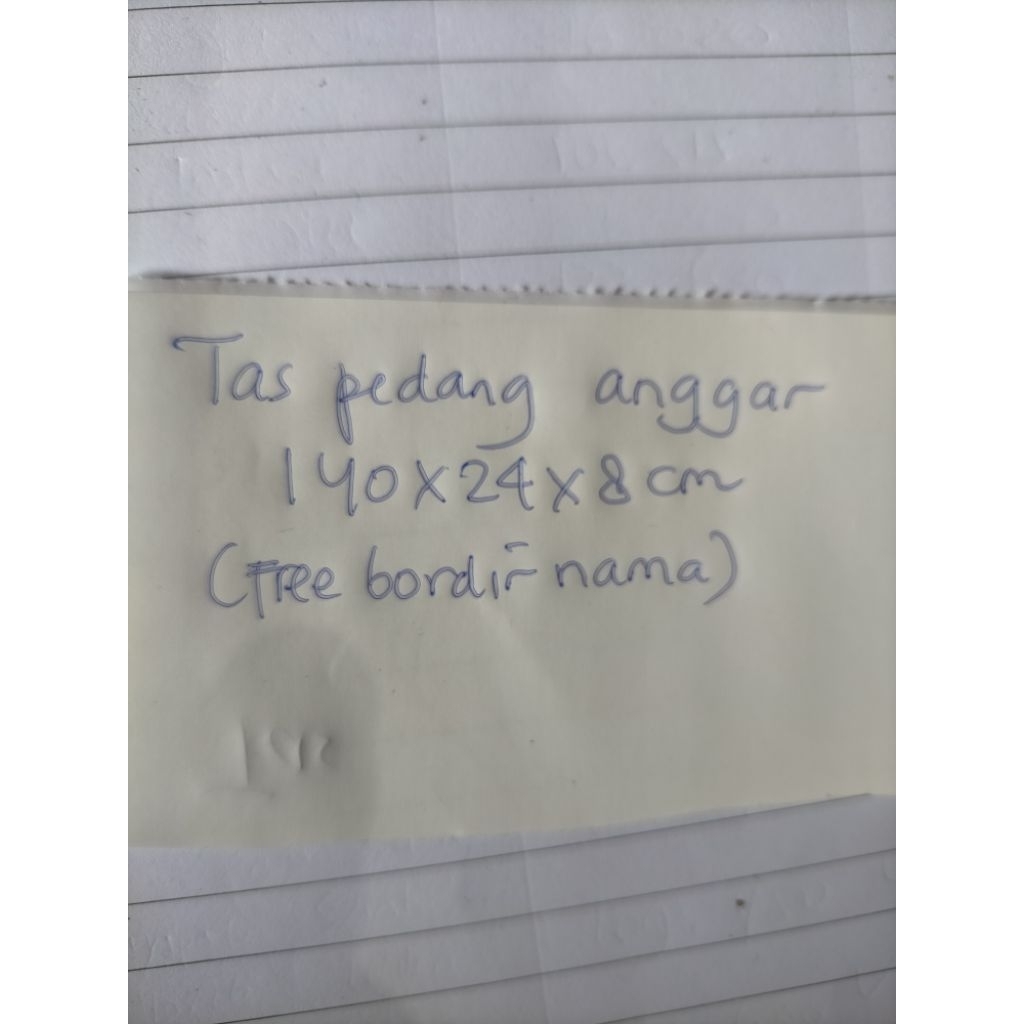 Tas pedang anggar
140x24x8 cm
(Free bordir nama)